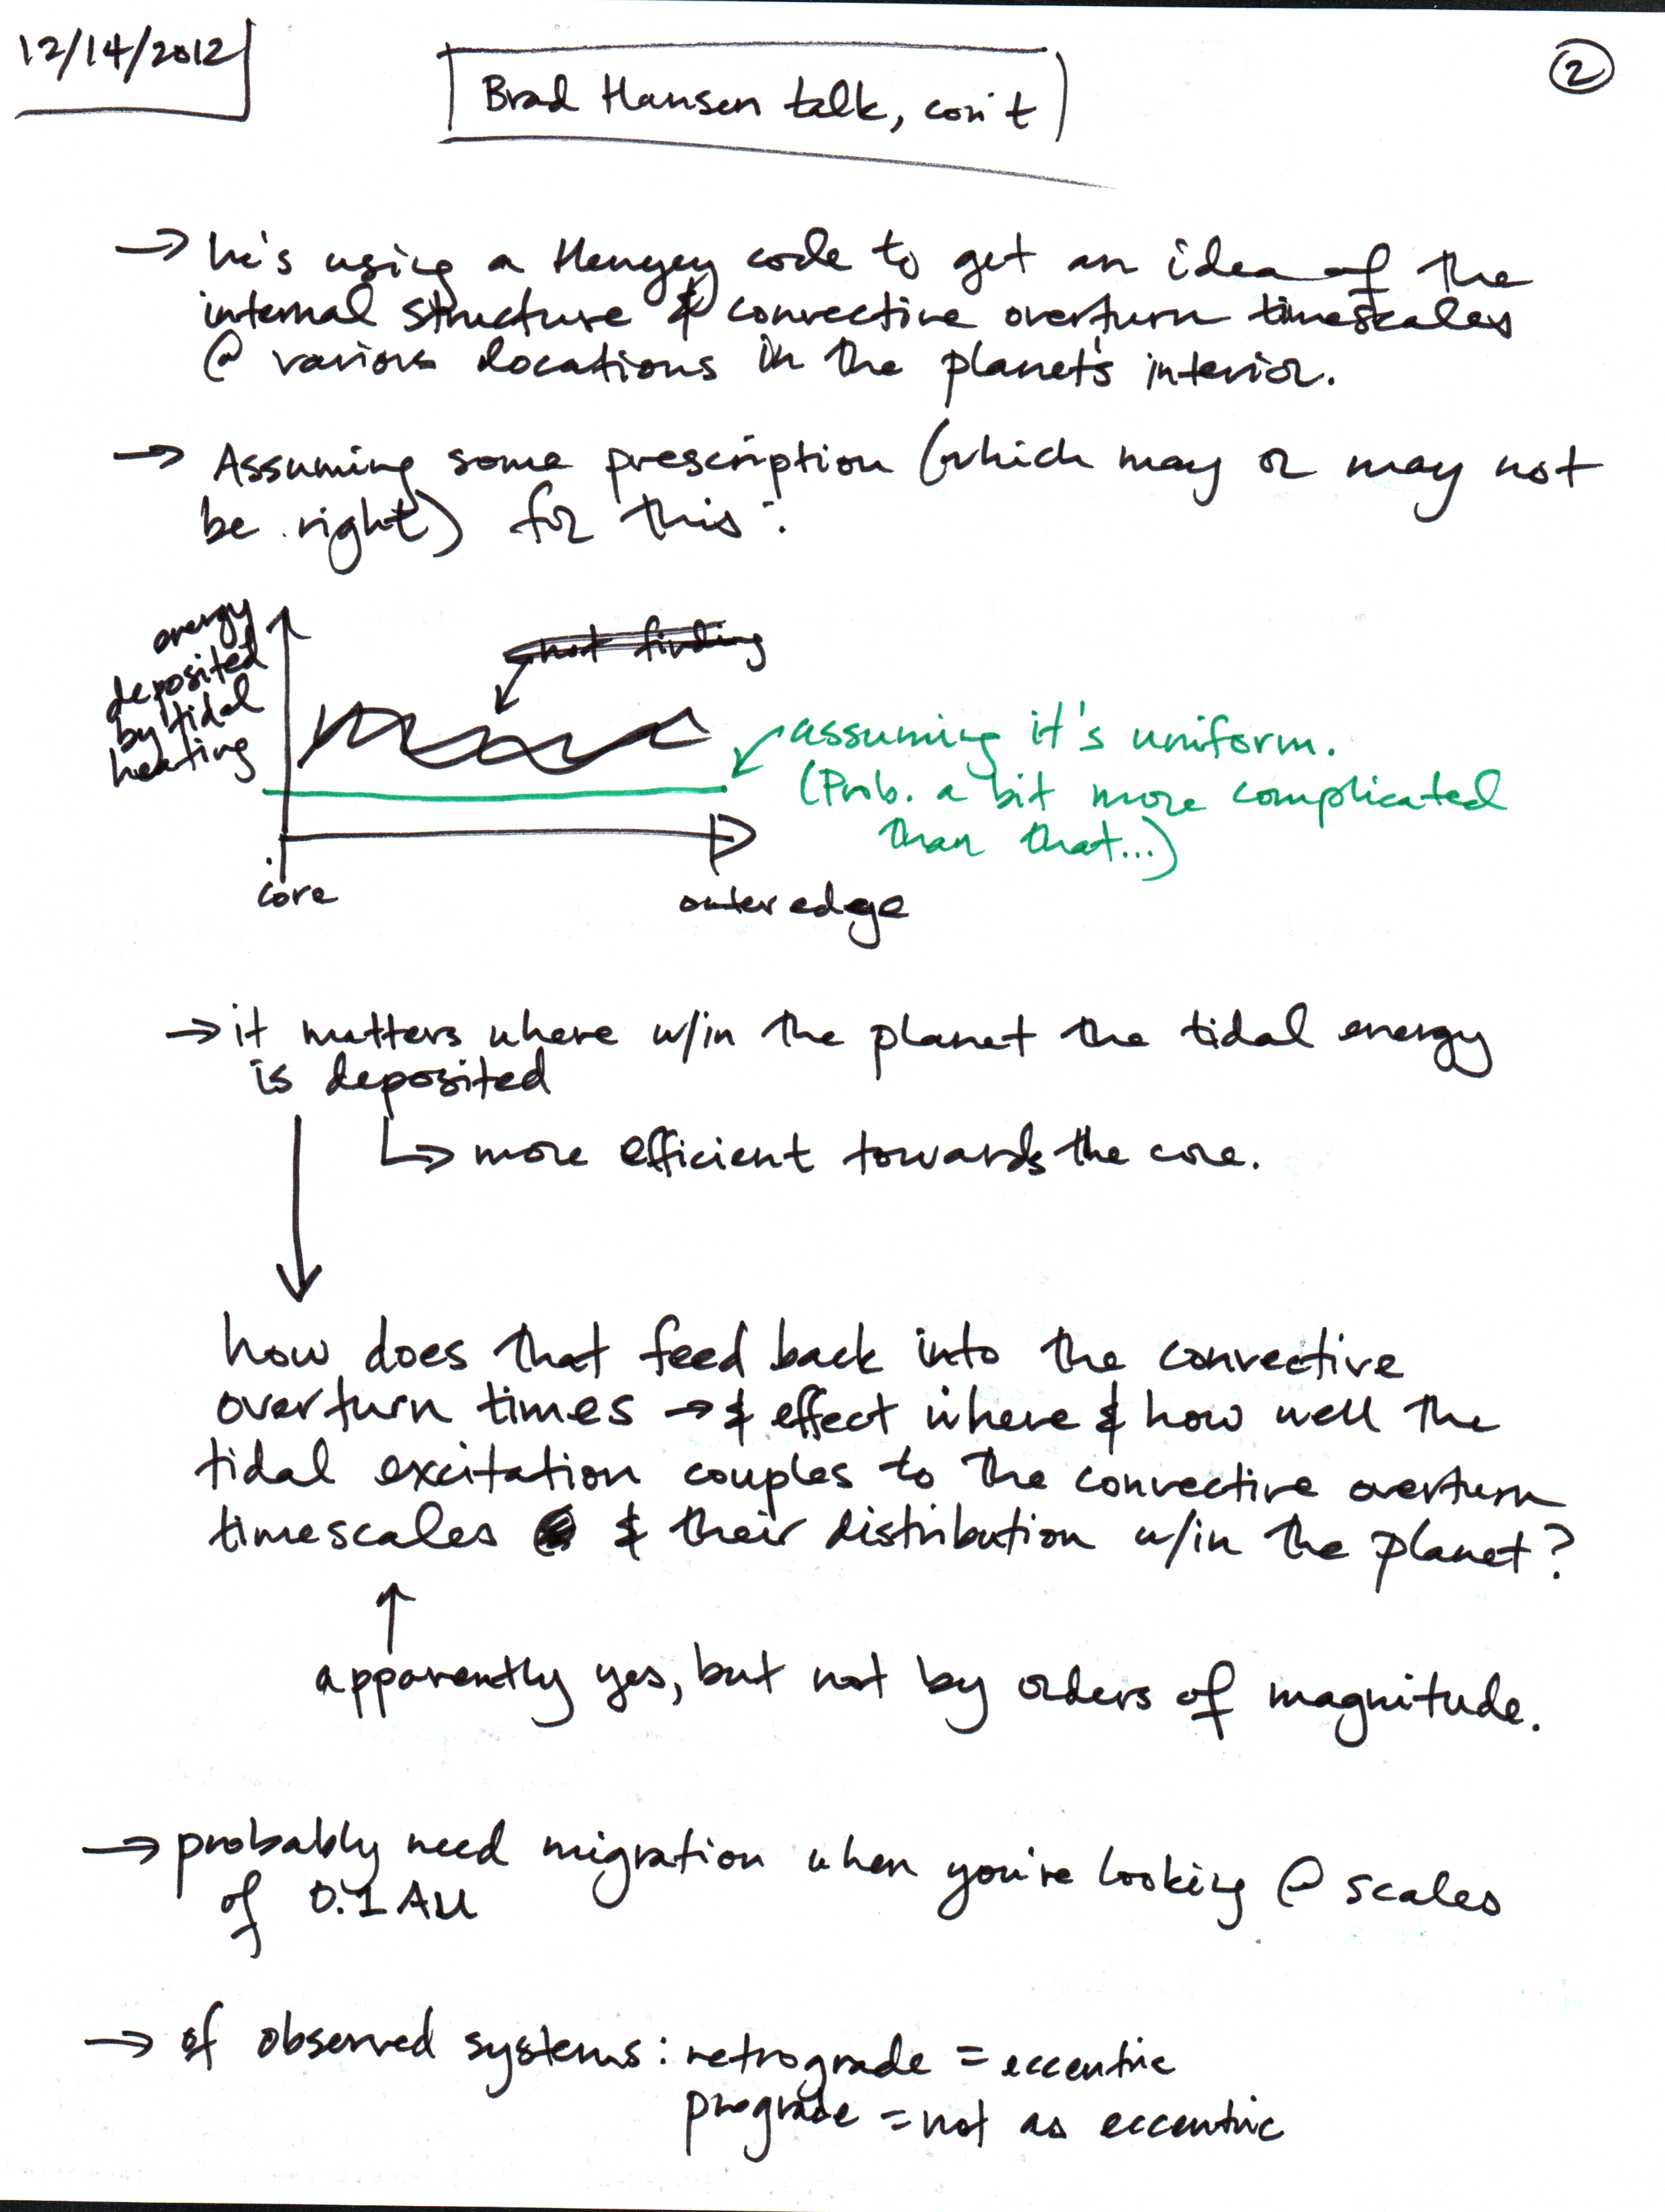 12/14/2012
Brad Hansen talk, con't
2
→ he's using a Henyey code to get an idea of the
internal structure & convective overturn timescales
@ various locations in the planet's interior.
→ Assuming some prescription (which may or may not
be right) for this:
energy
deposited
by tidal
heating
not finding
assuming it's uniform.
(Prob. a bit more complicated
than that...)
core
outer edge
→ it matters where w/in the planet the tidal energy
is deposited
↳ more efficient towards the core.
how does that feed back into the convective
overturn times → & effect where & how well the
tidal excitation couples to the convective overturn
timescales & their distribution w/in the planet?
↑
apparently yes, but not by orders of magnitude.
→ probably need migration when you're looking @ scales
of 0.1 AU
→ of observed systems: retrograde = eccentric
prograde = not as eccentric